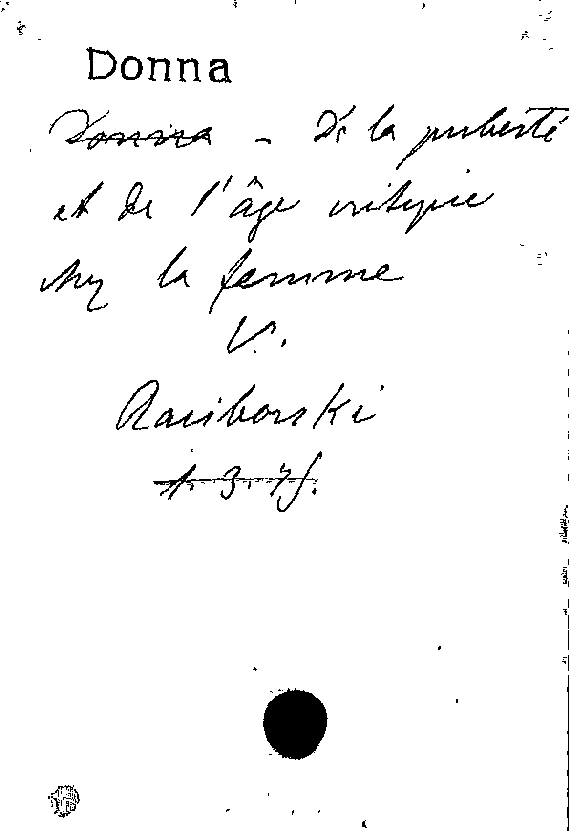 Donna
Donna - De la puberté
et de l'âge critique
chez la femme
V.
Raciborski
1. 3. 7f.